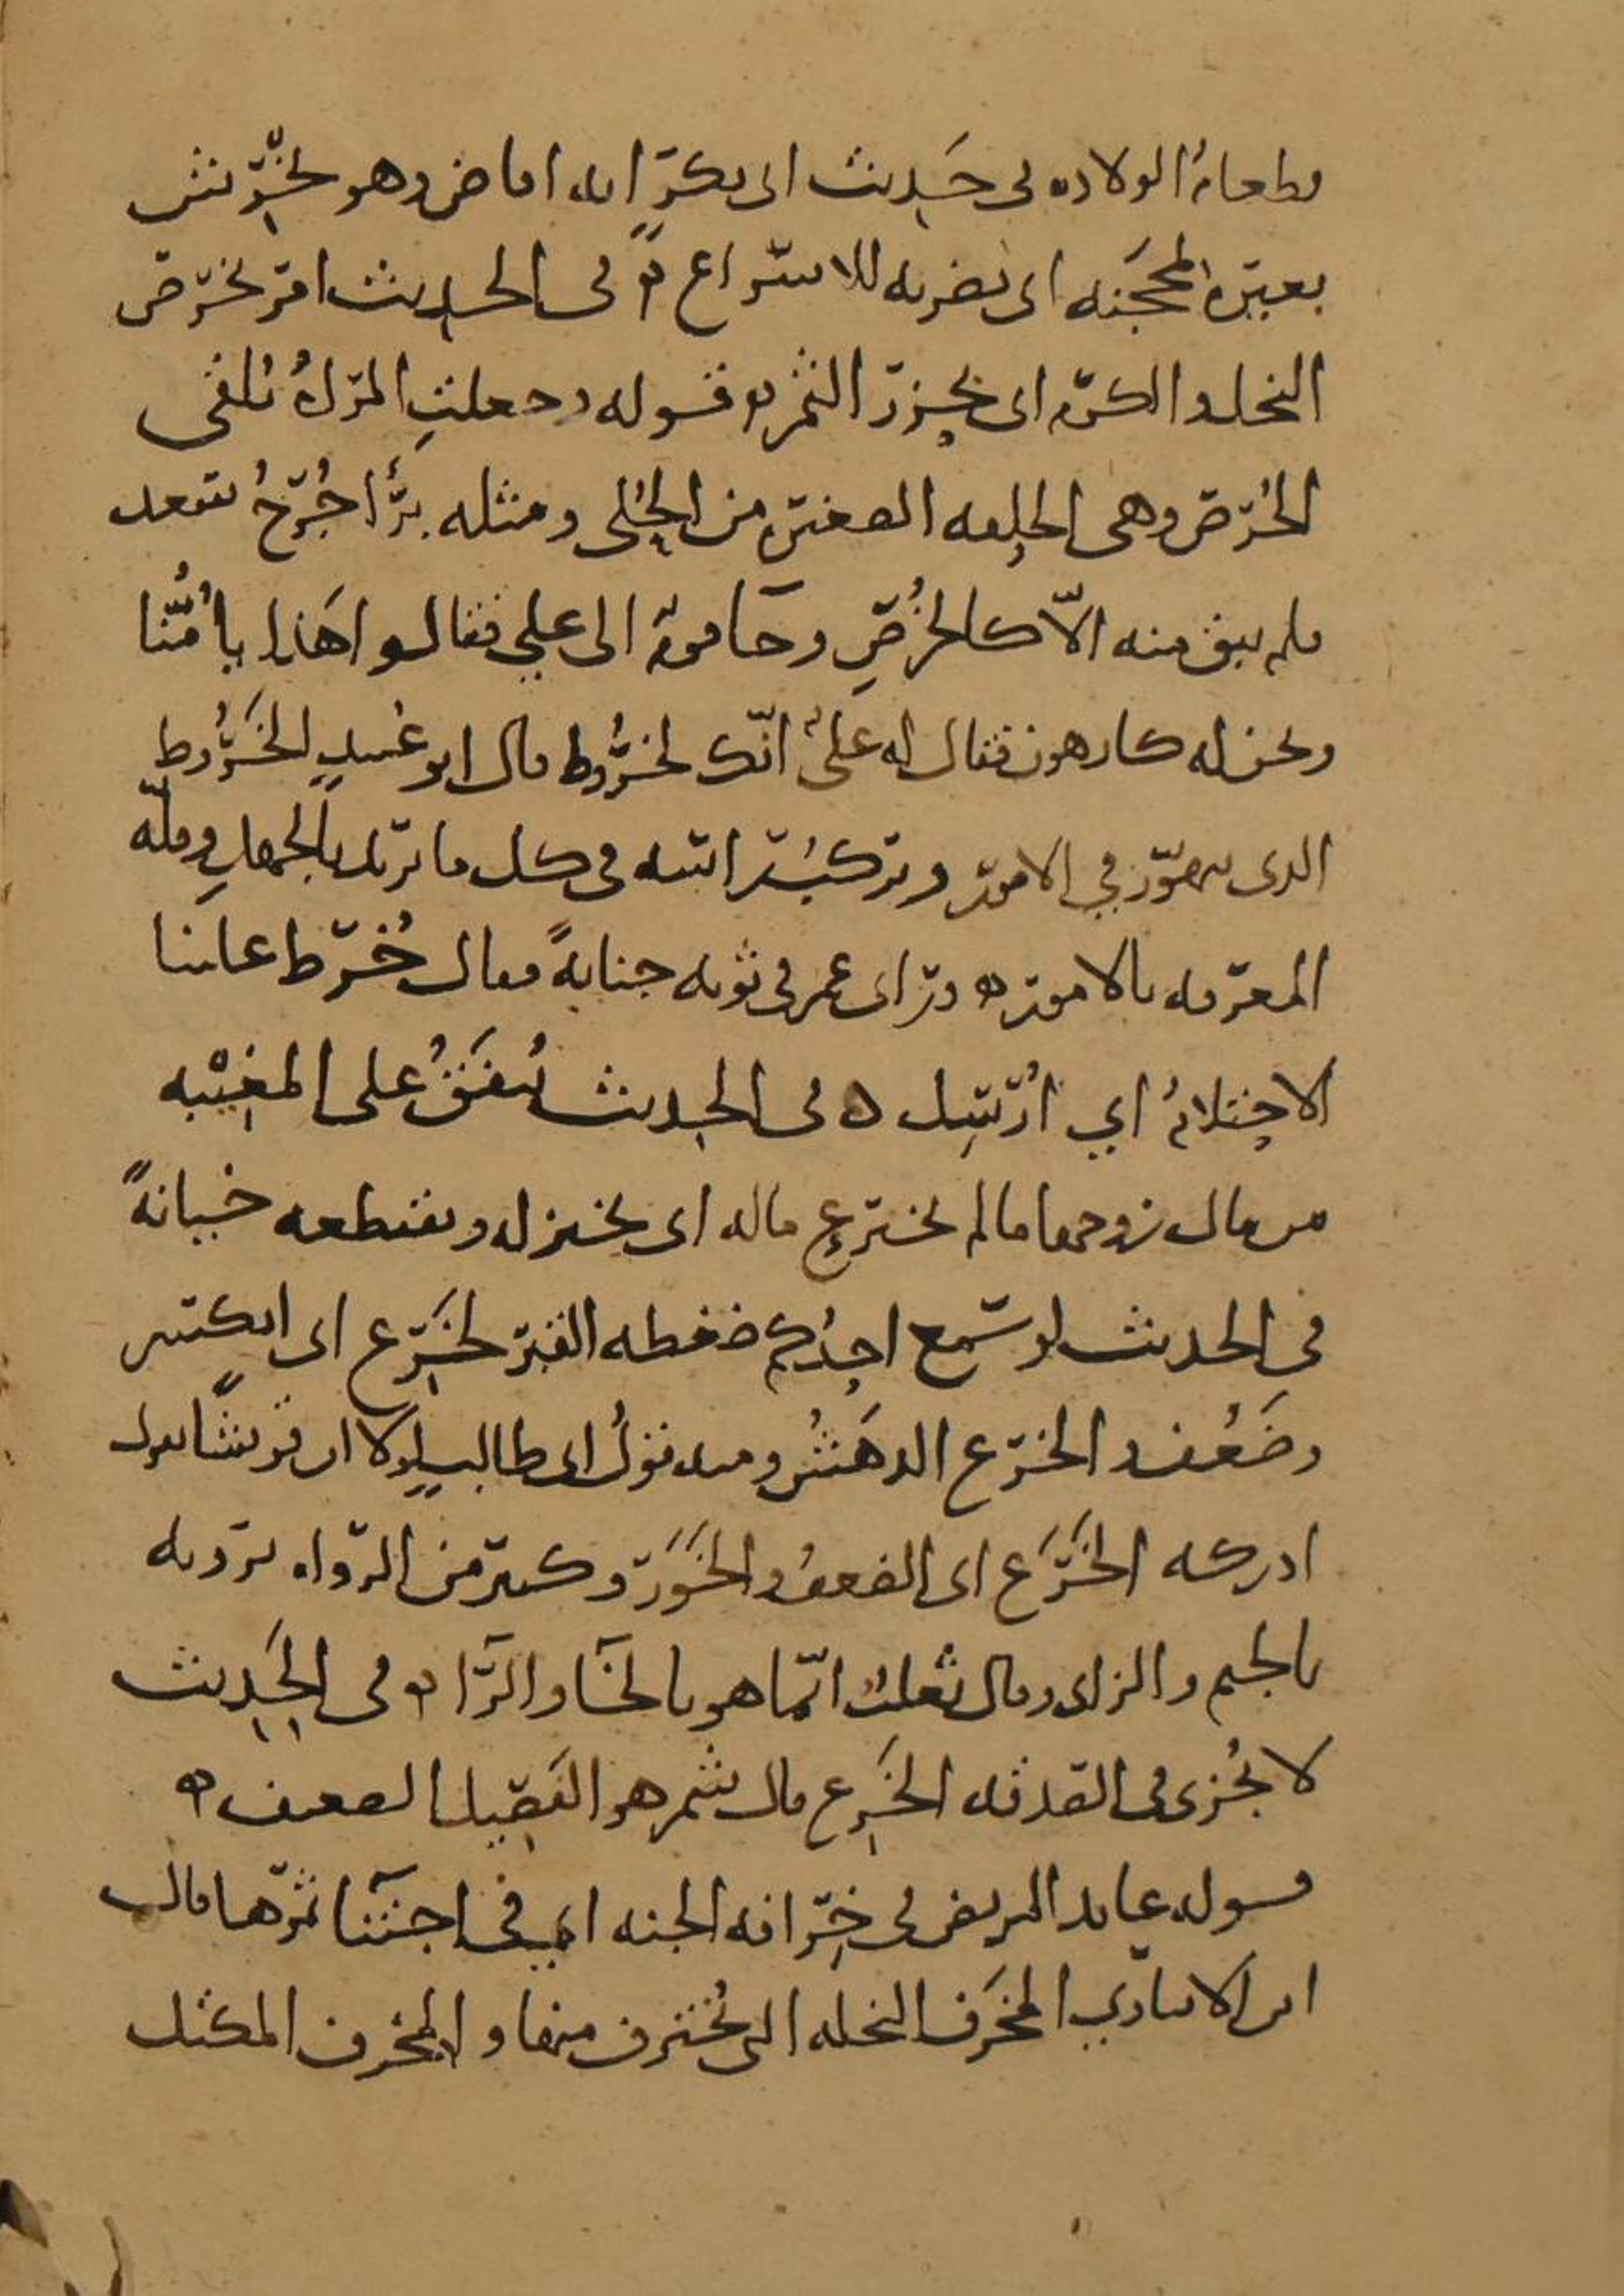 وطعام الولاده في حَديث ابي بكرٍ انه افاض وهو يخرّش
بعيره بمحجنه اي يضربه للاسراع ۞ في الحديث امر بخرص
النخل والكرم اي بحزر الثمر ۞ قوله وجعلتِ المراةُ تلقي
الخُرص وهي الحلقه الصغيره من الحُلي ومثله برأ جُرحُ سعد
فلم يبق منه الّا كالخُرصِ وجآ قوم الى علي فقالوا هَذا يامُّنا
ونحن له كارهون فقال له عليٌ انّك لخَرُوط قال ابو عُبيدٍ الخَرُوط
الذي يتهوّر في الامور ويركب راسه في كل ما يريد بالجهلِ وقلّه
المعرفه بالامور ۞ وراى عمر في ثوبه جنابةً فقال خُرط علينا
الاحتلامُ اي اُرسِل ۞ في الحديث يُنفَقُ على المغيْبه
من مال زوجها ما لم تخترع ماله اي تختزله وتقتطعه خيانةً
في الحديث لو سَمع احدُكم ضغطه القبر لخَرِع اي انكسر
وضَعُف والخرع الدهَشُ ومنه قولُ ابي طالب لولا ان قريشًا تقول
ادركه الخَرَع اي الضعفُ والخَوَر وكثير من الرواه يرويه
بالجيم والزاي وقال ثعلب انّما هو بالخآ والرّا ۞ في الحَديث
لا يُجزى في الصدقه الخَرِع قال شمر هو الفَصيل الضعيف ۞
قوله عايد المريض في خِرافه الجنه اي في اجتنآ ثمرها قال
ابن الانباري المخرَف النخله التي يُخترف منها و المِخرف المكتل